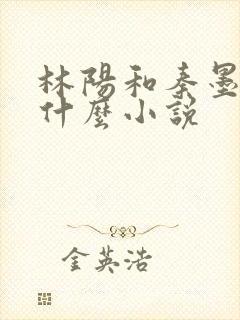 林陽和秦墨
什麼小說
金英浩